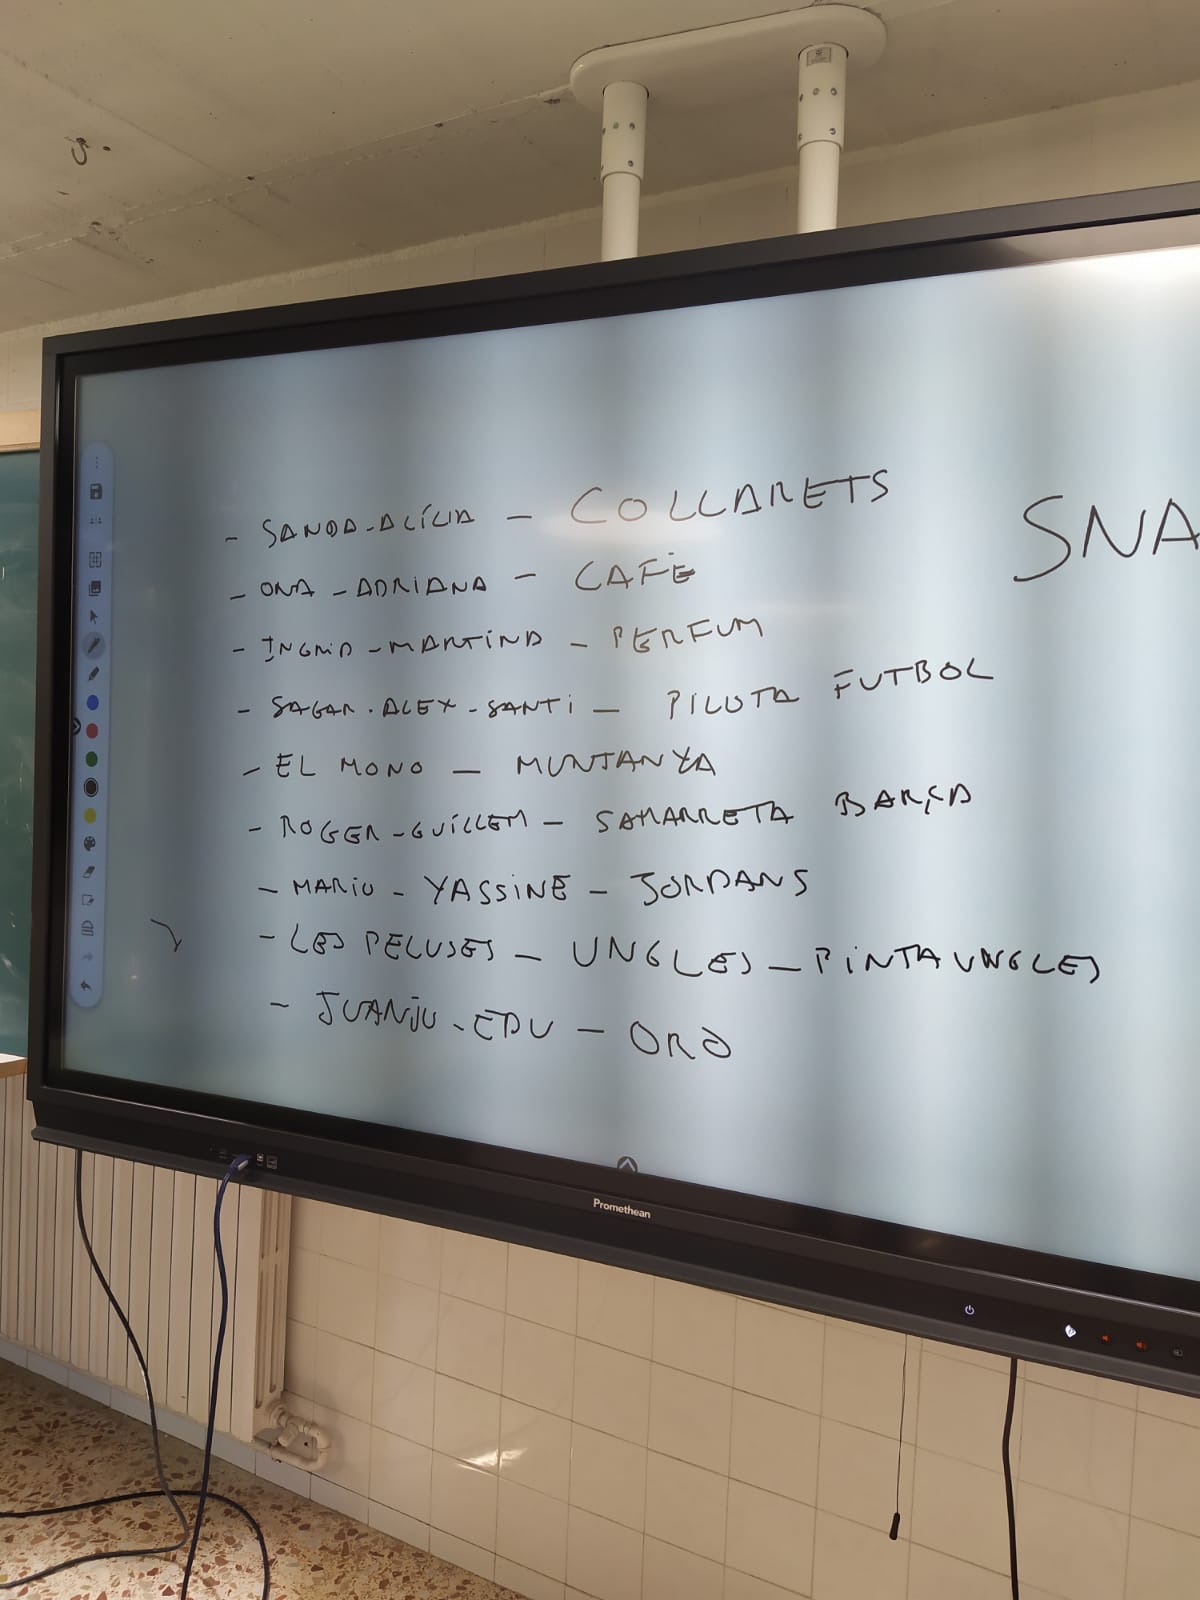 - SANDA-ALÍCIA - COLLARETS
- ONA - ADRIANA - CAFÈ
- INGRID - MARTINA - PERFUM
- SAGAR. ALEX - SANTI - PILOTA FUTBOL
- EL MONO - MUNTANYA
- ROGER - GUILLEM - SAMARRETA BARÇA
- MARIO - YASSINE - JORDANS
- LES PELUSES - UNGLES - PINTAUNGLES
- JUANJO - EDU - ORO
SNA
Promethean